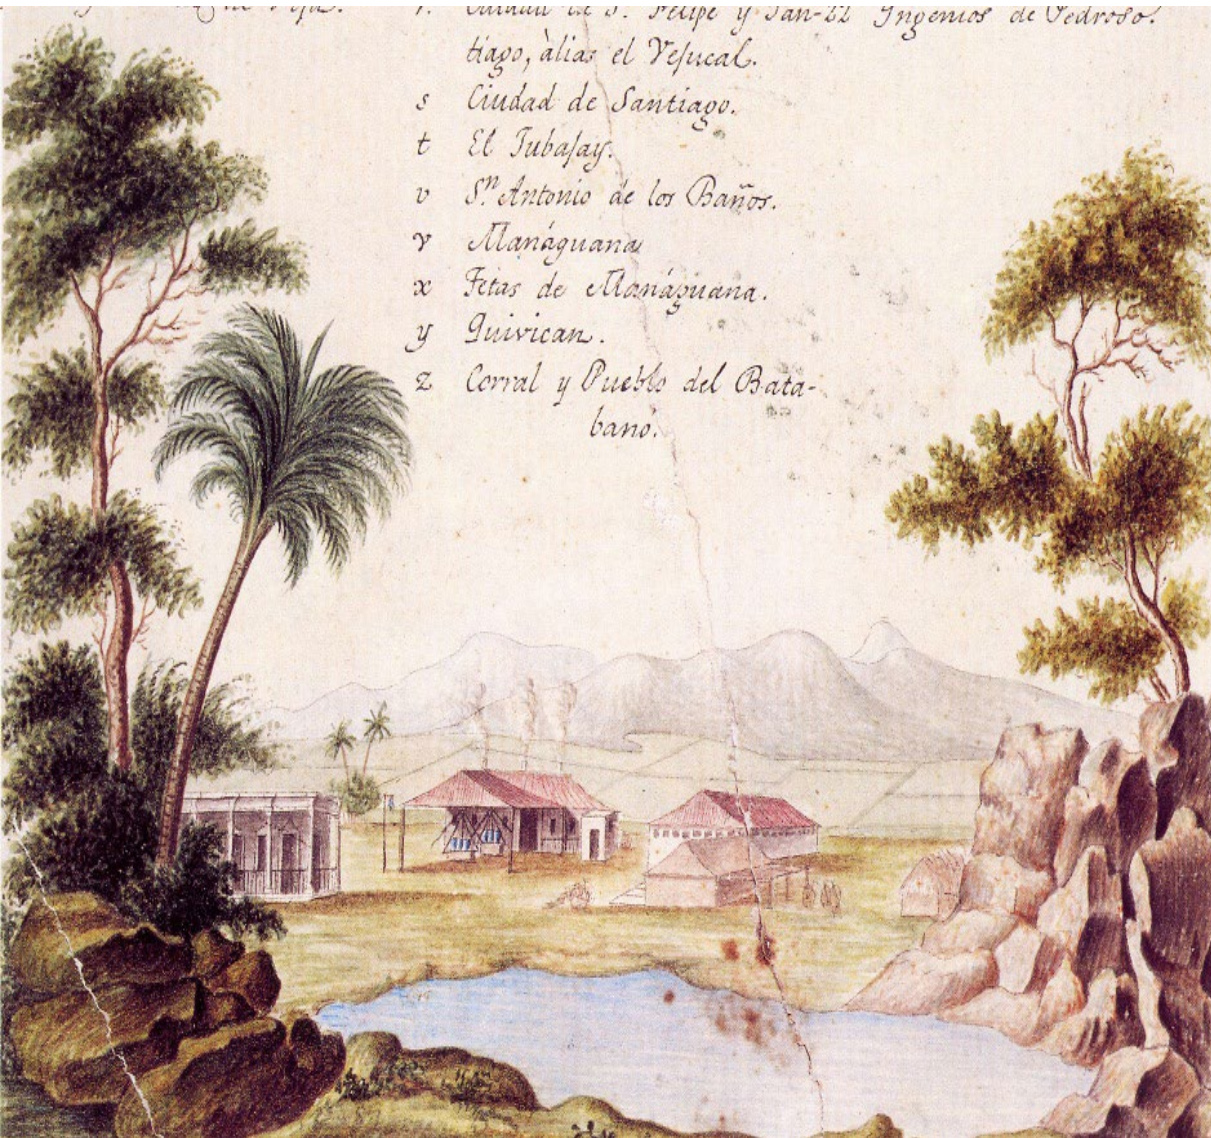 r. Ciudad de S. Felipe y San-
tiago, àlias el Vejucal.
s Ciudad de Santiago.
t El Jubajay.
v Sⁿ. Antonio de los Baños.
v Manáguana
x Tetas de Manáguana.
y Quivican.
z Corral y Pueblo del Bata-
banò.
22 Yngenios de Pedroso.